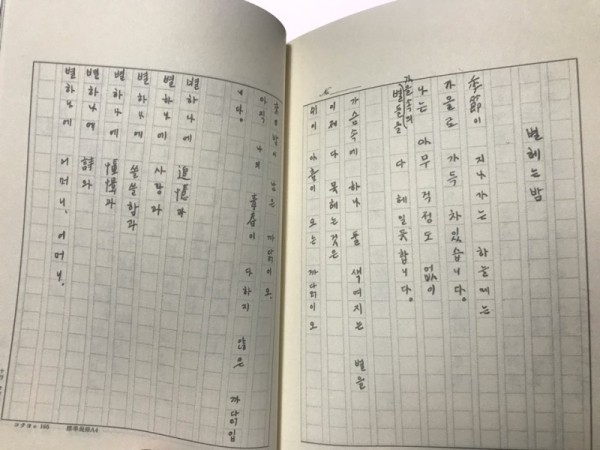 별헤는밤
季節이 지나가는 하늘에는
가을로 가득 차있습니다.
나는 아무 걱정도 없이
가을속의 별들을 다 헤일듯합니다.
가슴속에 하나 둘 색여지는 별을
이제 다 못헤는것은
쉬이 아츰이 오는 까닭이오
來日밤이 남은 까닭이오,
아직 나의 靑春이 다하지 않은 까닭입
니다.
별하나에 追憶과
별하나에 사랑과
별하나에 쓸쓸함과
별하나에 憧憬과
별하나에 詩와
별하나에 어머니, 어머니,
標準規格A4